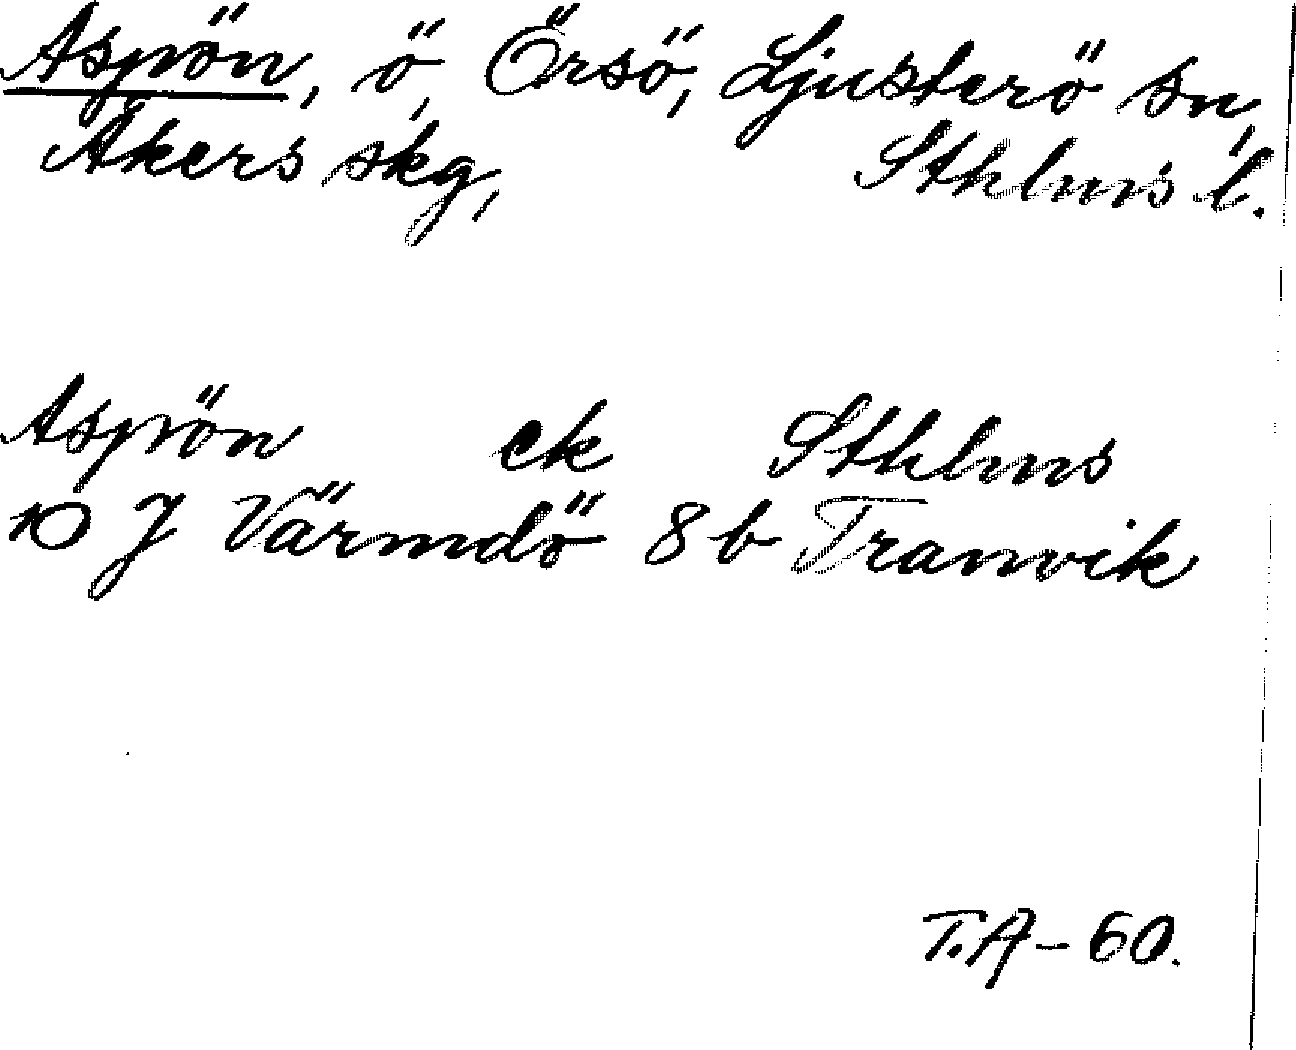 Aspön, ö, Örsö, Ljusterö sn,
Åkers skg, Sthlms l.
Aspön ek Sthlms
10 J Värmdö 8 b Tranvik
T.A - 60.